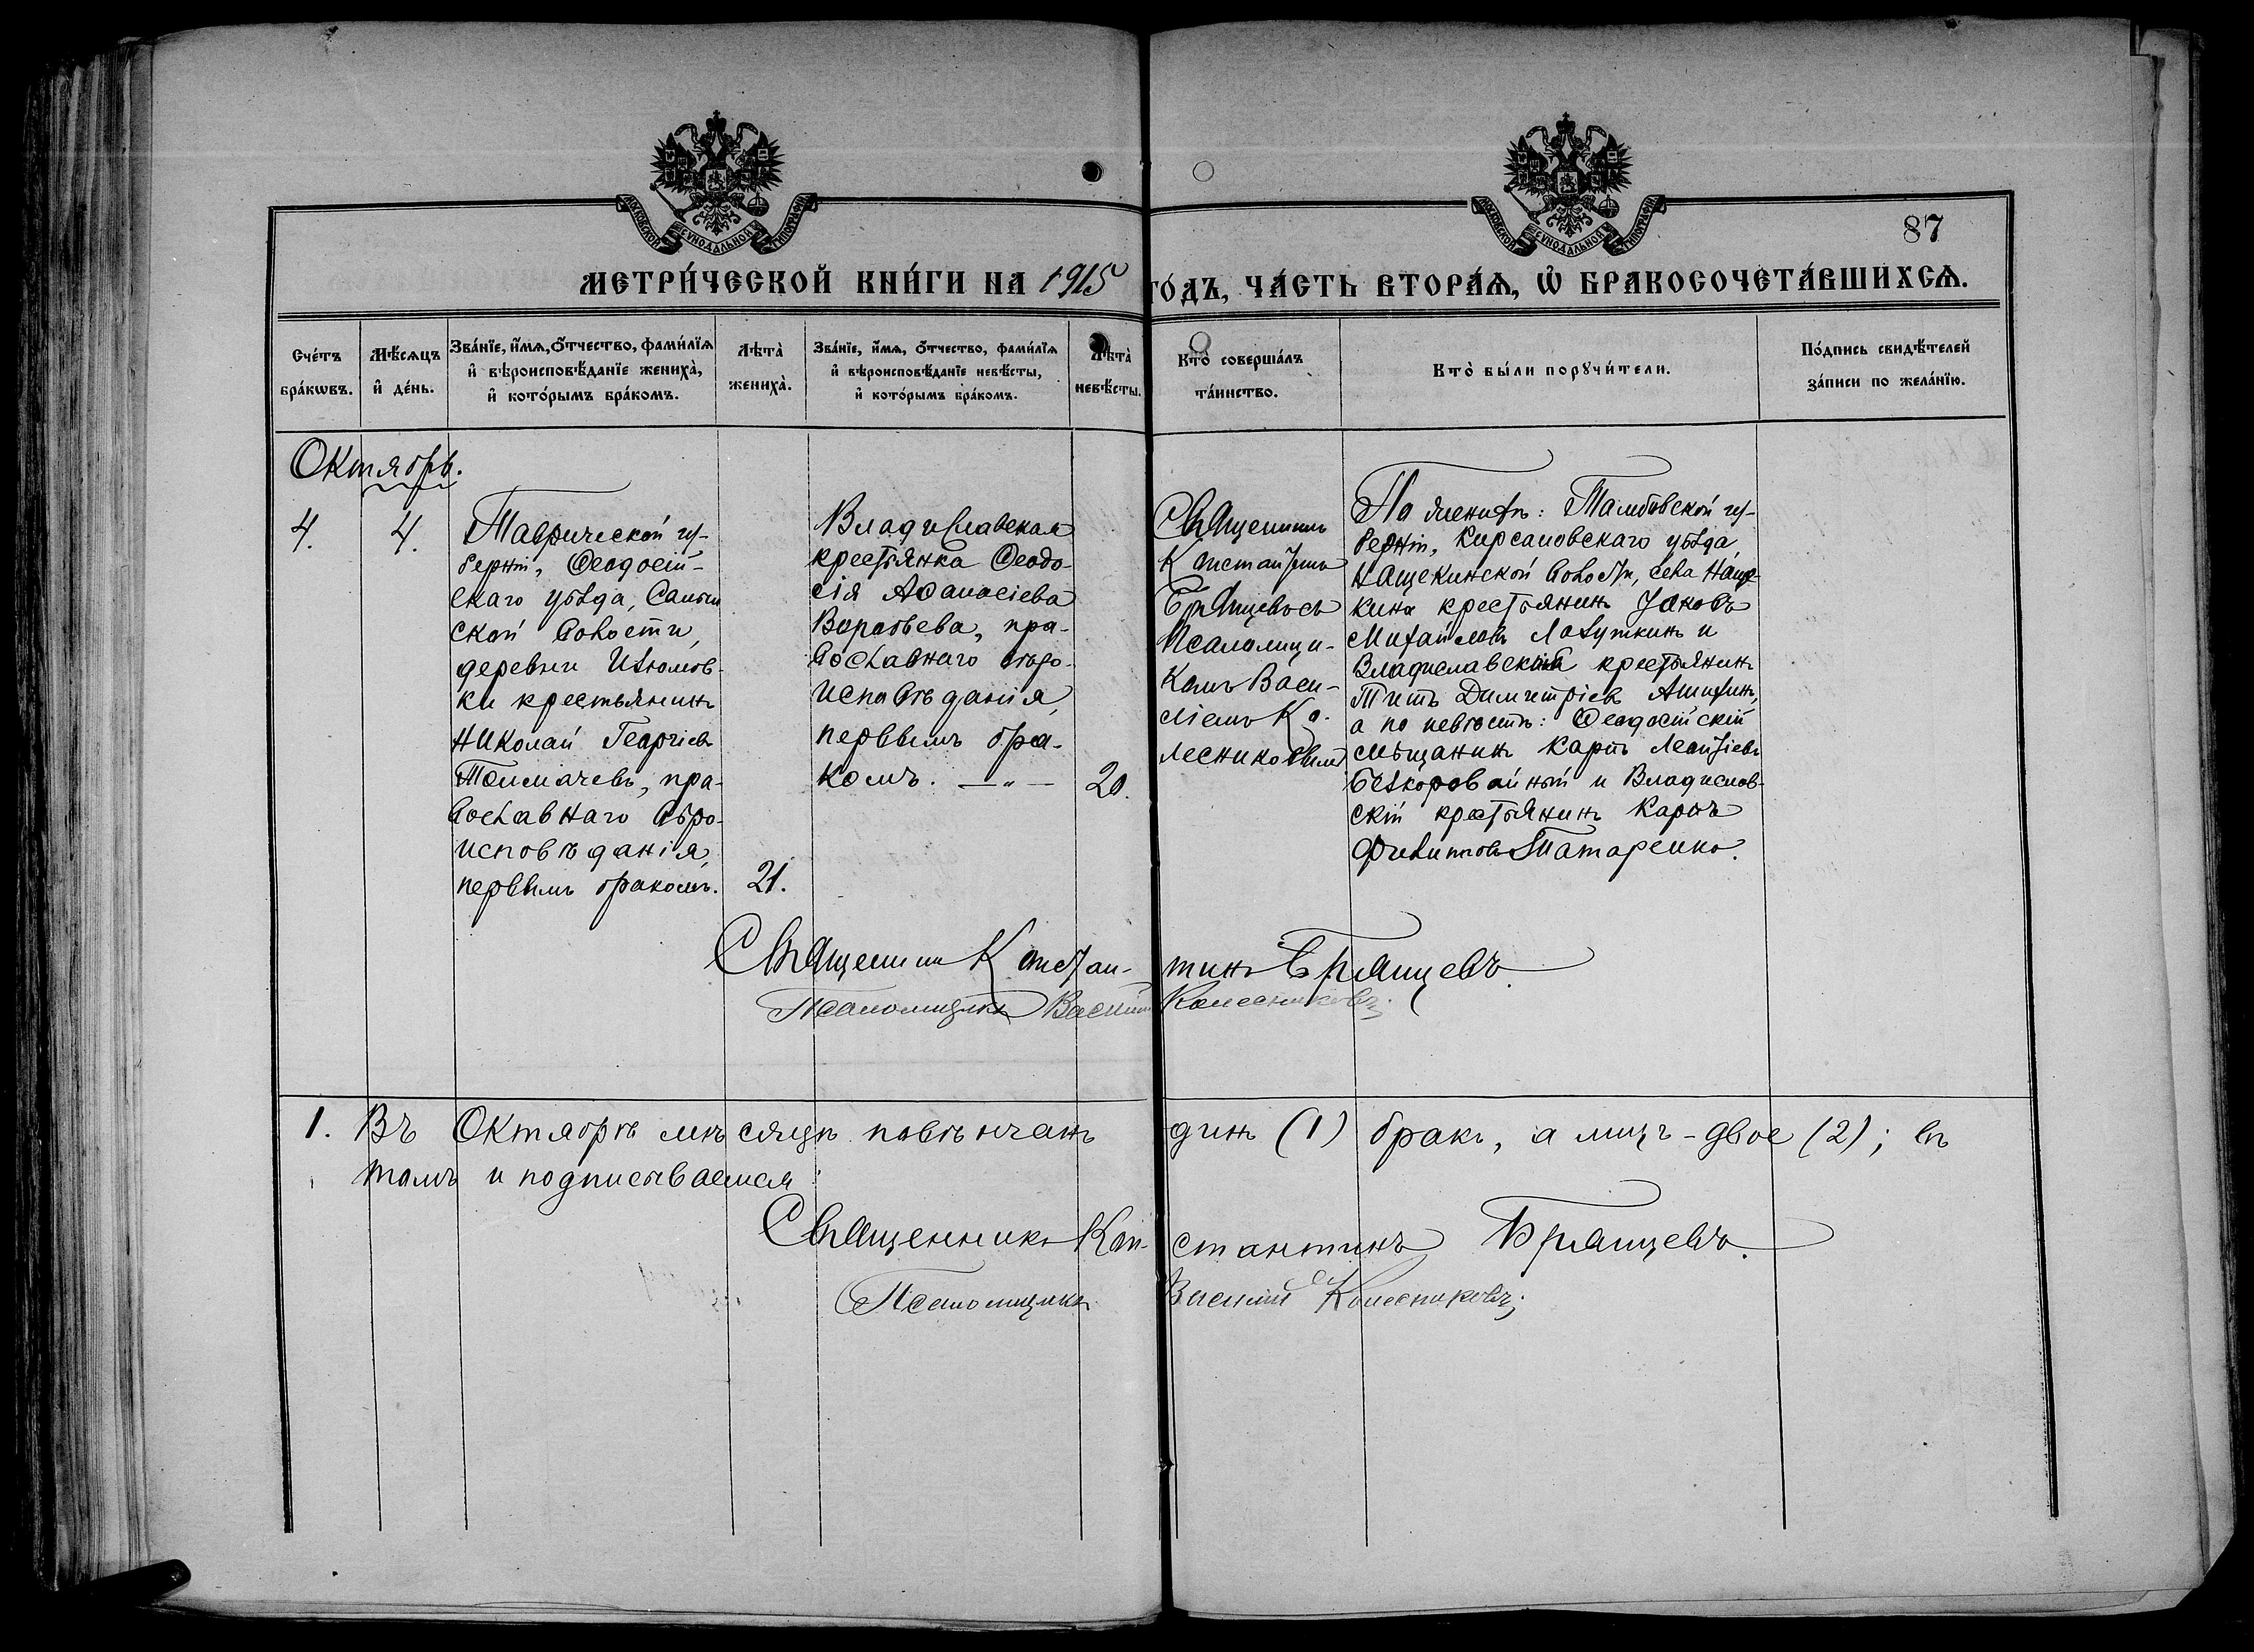 МОСКОВСКОЙ СѴНОДАЛЬНОЙ ТИПОГРАФІИ
МОСКОВСКОЙ СѴНОДАЛЬНОЙ ТИПОГРАФІИ
87
МЕТРИ́ЧЕСКОЙ КНИ́ГИ НА 1915 ГО́ДЪ, ЧА́СТЬ ВТОРА́Ѧ, Ѡ҆ БРАКОСОЧЕТА́ВШИХСѦ.
Сче́тъ
бра́кѡвъ.
Мѣ́сѧцъ
и҆ де́нь.
Зва́нїе, и҆́мѧ, ѻ҆́тчество, фами́лїѧ
и҆ вѣроисповѣ́данїе жениха̀,
и҆ кото́рымъ бра́комъ.
Лѣ̑та̀
жениха̀.
Зва́нїе, и҆́мѧ, ѻ҆́тчество, фами́лїѧ
и҆ вѣроисповѣ́данїе невѣ́сты,
и҆ кото́рымъ бра́комъ.
Лѣ̑та̀
невѣ́сты.
Кто̀ соверша́лъ
та́инство.
Кто̀ бы́ли порꙋчи́тели.
По́дпись свидѣ́телей
за́писи по жела́нїю.
Октябрь.
4.
4.
Таврической гу-
берніи, Ѳеодосій-
скаго уѣзда,
ской волости,
деревни Изюмов-
ки крестьянинъ
Николай Георгіевъ
Толмачевъ, пра-
вославнаго вѣро-
исповѣданія,
первымъ бракомъ.
21.
Владиславская
крестьянка Ѳеодо-
сія Аѳанасіева
Воробьева, пра-
вославнаго вѣро-
исповѣданія,
первымъ бра-
комъ. —„—
20.
Священникъ
Константинъ
Брянцевъ съ
псаломщи-
комъ Васи-
ліемъ Ко-
лесниковымъ
По женихѣ: Тамбовской гу-
берніи, Кирсановскаго уѣзда,
Нащекинской волости, села Наще-
кина крестьянинъ Іаковъ
Михайловъ Лазуткинъ и
Владиславскій крестьянинъ
Титъ Димитріевъ
а по невѣстѣ: Ѳеодосійскій
мѣщанинъ Карпъ Леонтіевъ
Безкоровайный и Владислав-
скій крестьянинъ Карпъ
Филипповъ Татаренко.
Священникъ Константинъ Брянцевъ.
Псаломщикъ Василій Колесниковъ.
1. Въ Октябрѣ мѣсяцѣ повѣнчанъ динъ (1) бракъ, а лицъ – двое (2); въ
томъ и подписываемся:
Священникъ Константинъ Брянцевъ.
Псаломщикъ Василій Колесниковъ.